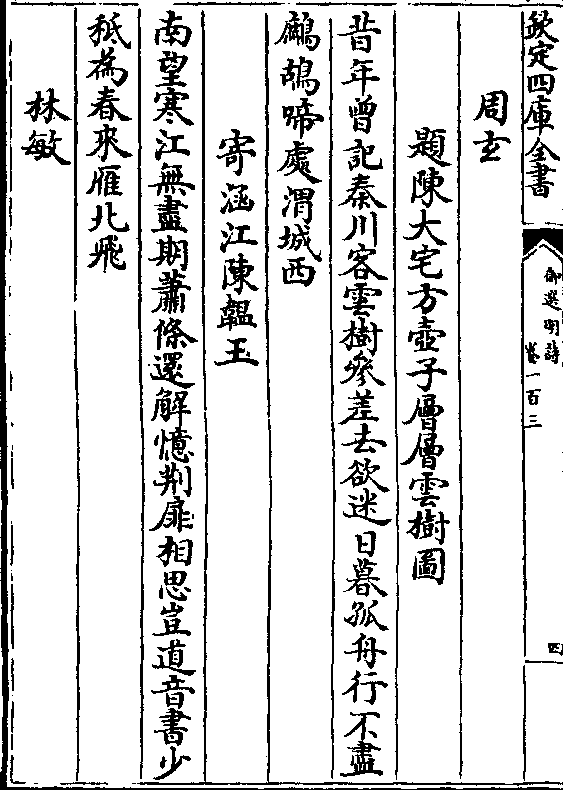 欽定四庫全書
御選明詩
卷一百三
四
周玄
題陳大宅方壺子層層雲樹圖
昔年曾記秦川客雲樹參差去欲迷日暮孤舟行不盡
鷓鴣啼處渭城西
寄涵江陳韞玉
南望寒江無盡期蕭條還解憶荆扉相思豈道音書少
秪為春來雁北飛
林敏